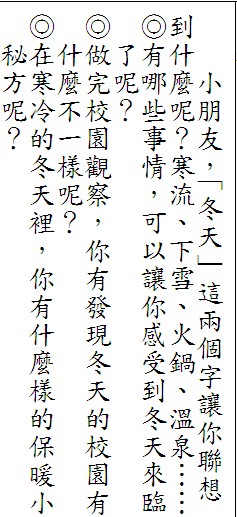 小朋友，「冬天」這兩個字讓你聯想
到什麼呢？寒流、下雪、火鍋、溫泉……
◎有哪些事情，可以讓你感受到冬天來臨
了呢？
◎做完校園觀察，你有發現冬天的校園有
什麼不一樣呢？
◎在寒冷的冬天裡，你有什麼樣的保暖小
秘方呢？